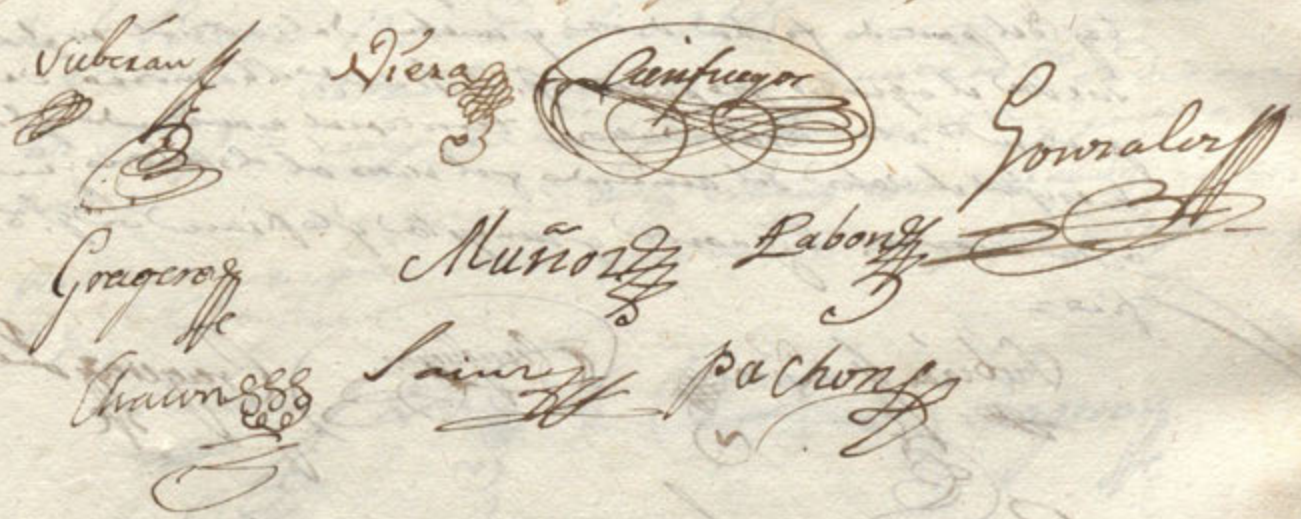 Suberán Viera Cienfuegos
Gonzalez
Gragero Muñoz Pabon
Chacon Sainz Pachon